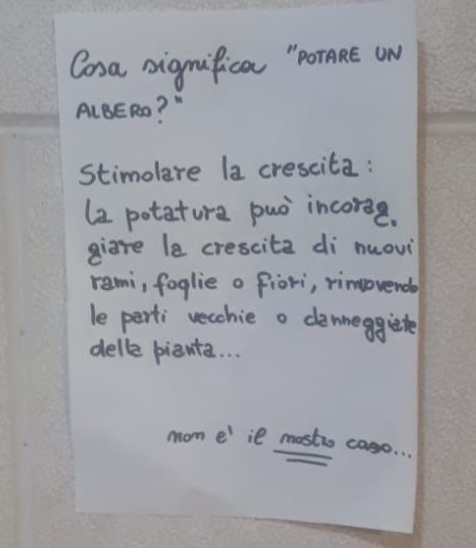 Cosa significa "POTARE UN
ALBERO?"
Stimolare la crescita:
la potatura può incorag.
giare la crescita di nuovi
rami, foglie o fiori, rimovendo
le parti vecchie o danneggiate
della pianta...
non e' il nostro caso...